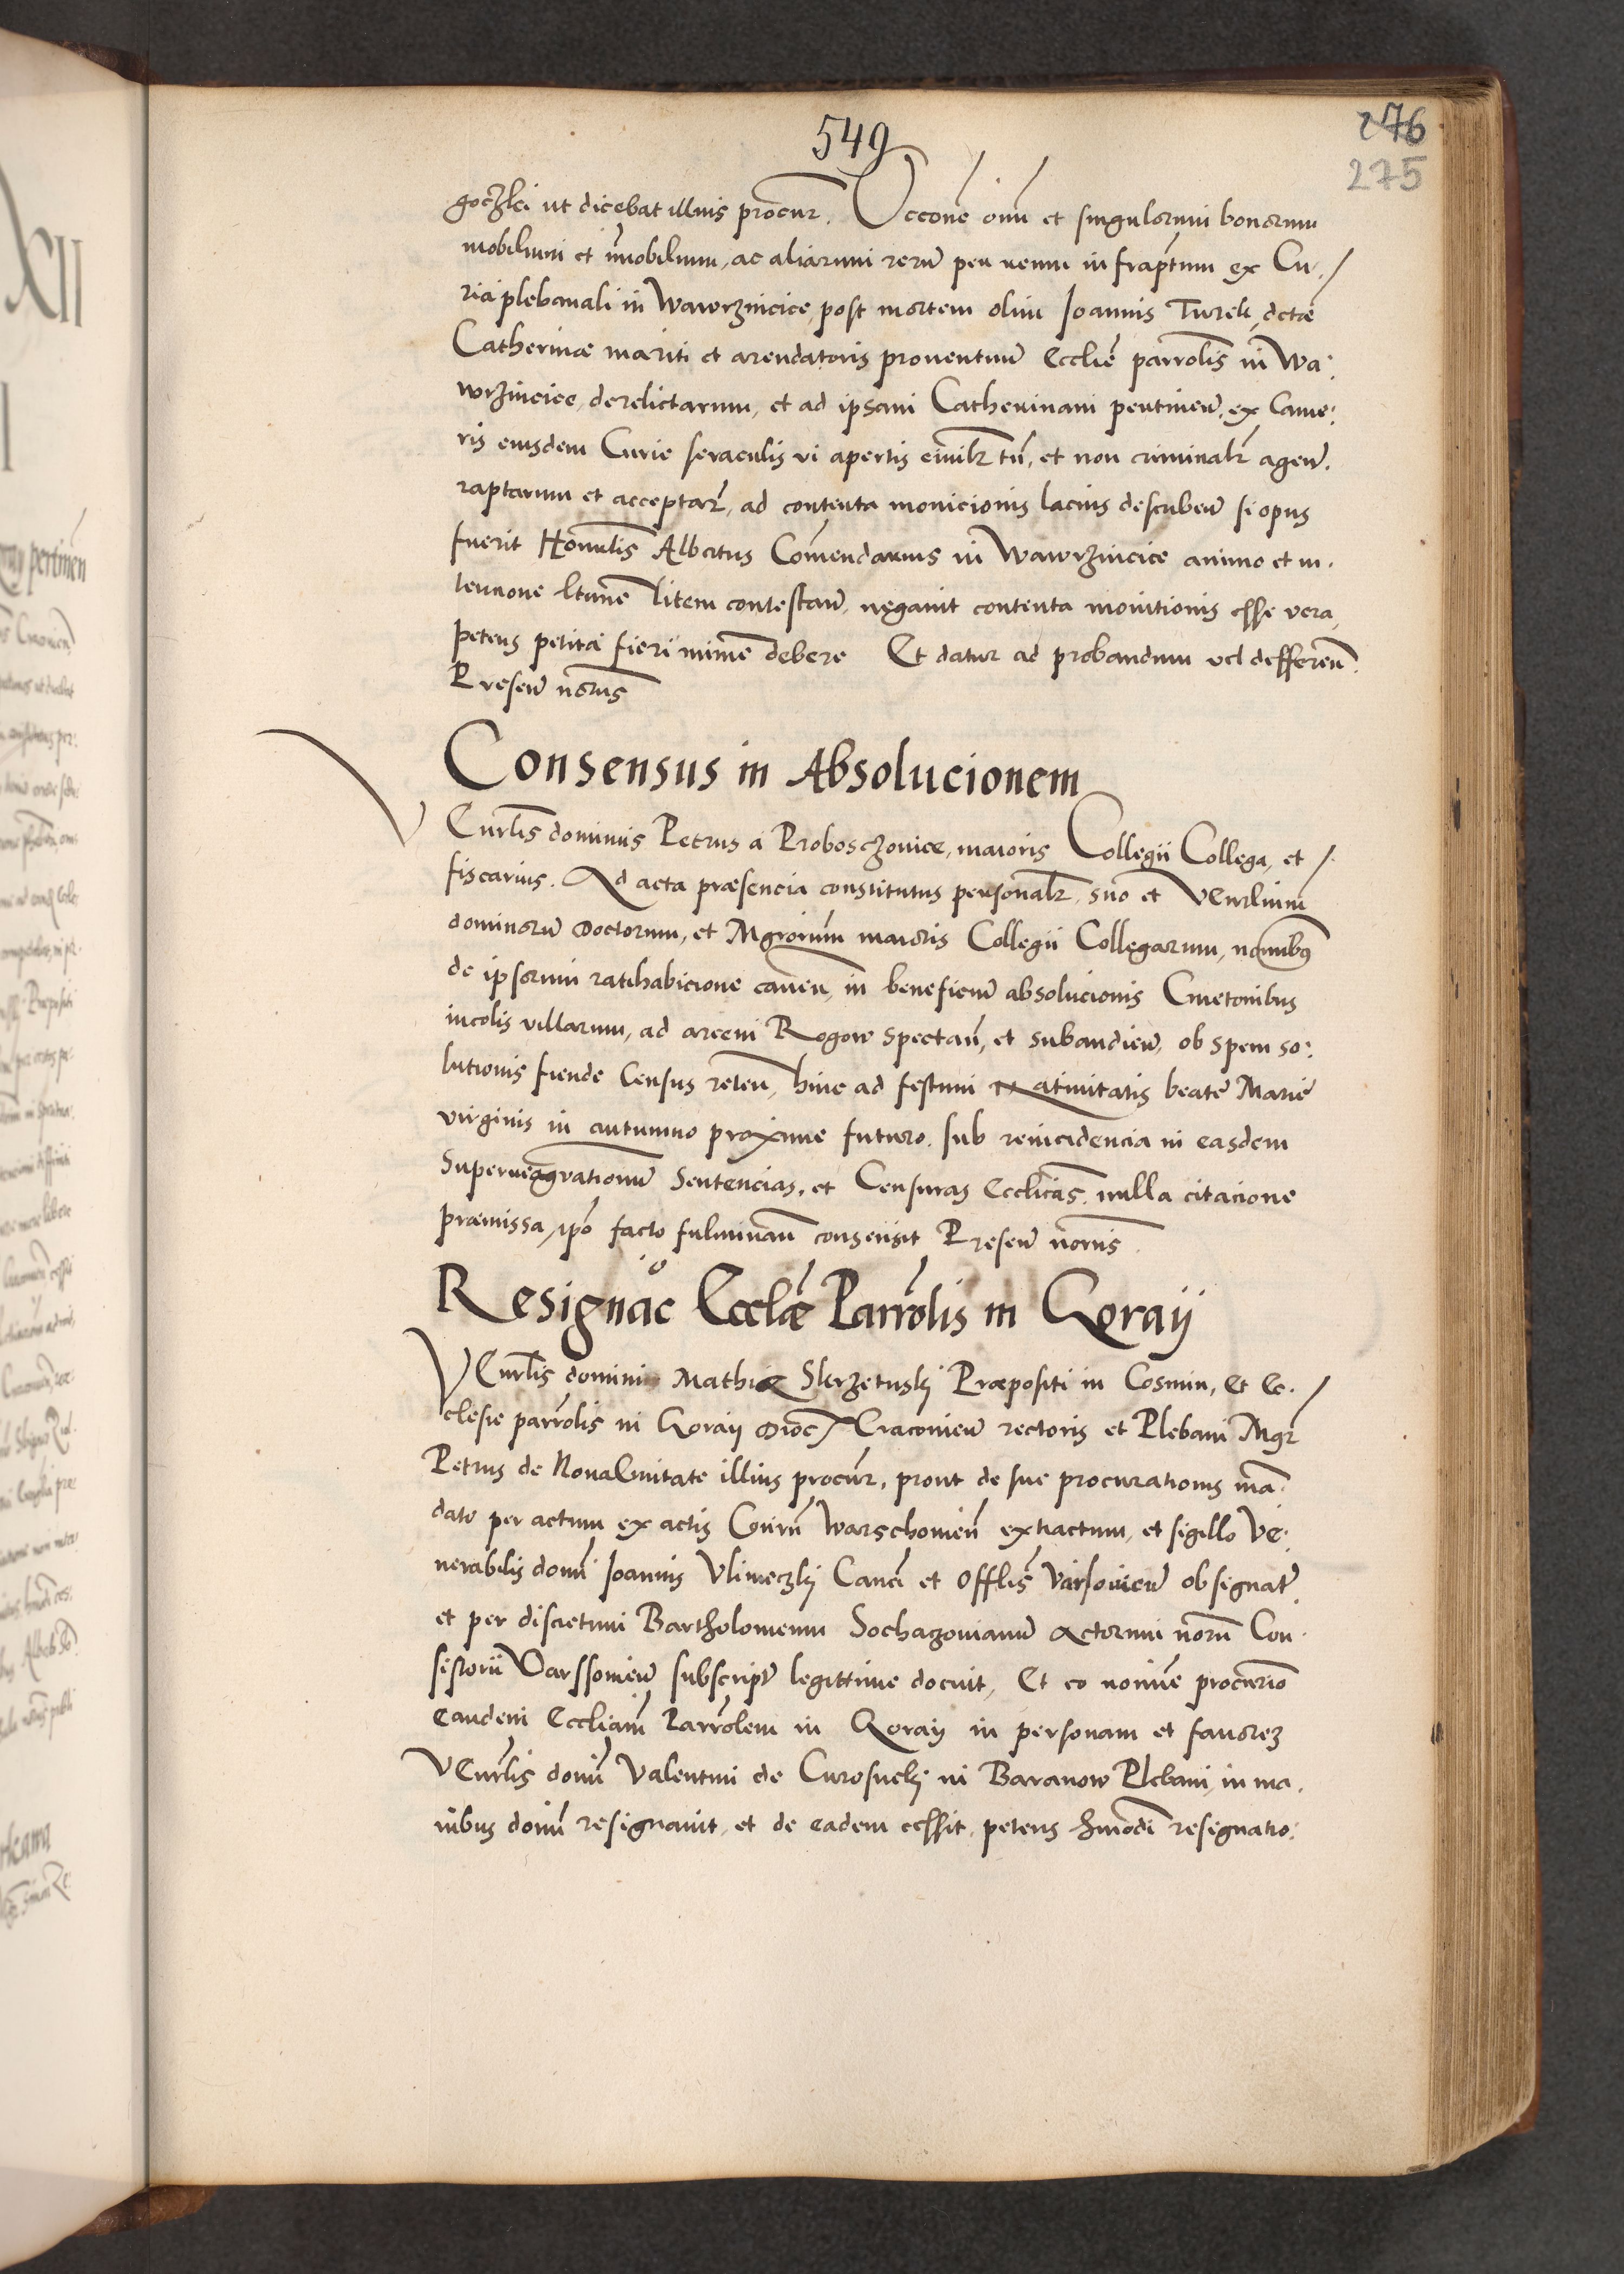 549
276
275
goczkj ut dicebat illius procur. Occone oium et singulorum bonorum
mobilium et immobilium, ac aliarum rerum per reum infraptum ex Cu-
ria plebanali in Wawrzincice, post mortem olim Joannis Turek, dctae
Catherinae mariti et arendatoris proventuum Ecclie parrolis in Wa:
wrzincice, derelictarum, et ad ipsam Catherinam pertinen. ex Came:
ris eiusdem Curie seraculis vi apertis civilr tn, et non criminalr agen.
raptarum et acceptar, ad contenta monicionis lacius describen si opus
fuerit Honrulis Albertus Comendarius in Wawrzincice animo et in.
tencione ltime litem contestan, negavit contenta monitionis esse vera,
petens petita fieri minime debere Et datur ad probandum vel defferen.
Presen notus
Consensus in Absolucionem
VEnrlis dominus Petrus a Proboszczovice, maioris Collegii Collega, et
fiscarius. Ad acta praesencia constitutus personalr, suo et VEnrlium
dominorum Doctorum, et Mgrorum maioris Collegii Collegarum, nominibus
de ipsorum ratihabicione caven, in beneficium absolucionis Cmetonibus
incolis villarum, ad arcem Rogow spectan, et subaudien, ob spem so:
lutionis fiende Census reten, hinc ad festum Nativitatis beate Marie
virginis in autumno proxime futuro. sub reincidencia in easdem
superaggravationum Sentencias, et Censuras Ecclicas, nulla citacione
praemissa, ipo facto fulminan consensit Presen notus.
Resignac Ecclae Parrolis in Goraij
VEnrlis domini Mathiae Skrzetuskj Praepositi in Cosmin, et Ec.
clesie parrolis in Goraij Dioc Cracovien rectoris et Plebani Mgr
Petrus de Nova Civitate illius procur, prout de sue procurationis man.
dato per actum ex actis Conrii Warschovien extractum, et sigillo Ve:
nerabilis domi Joannis Vlimeczkj Canci et Offlis Varsovien obsignat,
et per discretum Bartholomeum Sochaczovianum Actorum notrum Con.
sistorii Varssovien subscript legittime docuit, Et eo nomine procurio
eandem Eccliam Parrolem in Goraij in personam et favorem
VEnrlis domi Valentini de Curosuekj in Baranow Plebani, in ma.
nibus domi resignavit, et de eadem cessit, petens hmodi resignatio: